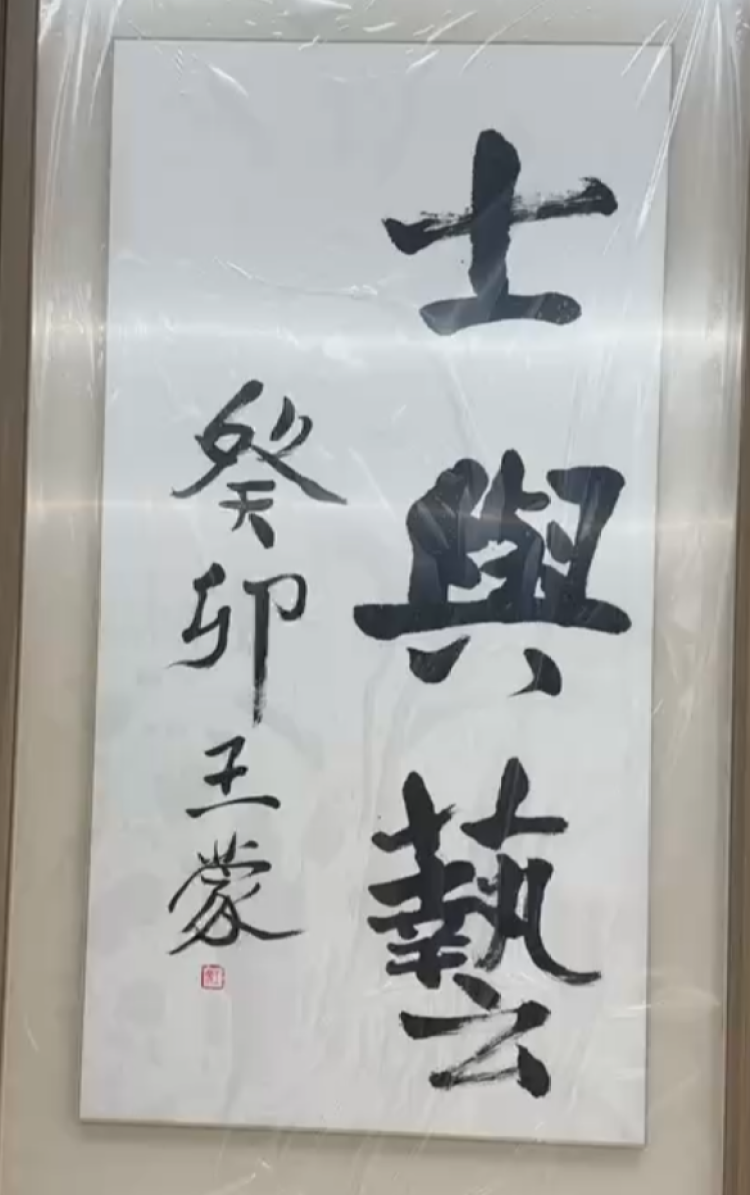 士與藝
癸卯王蒙